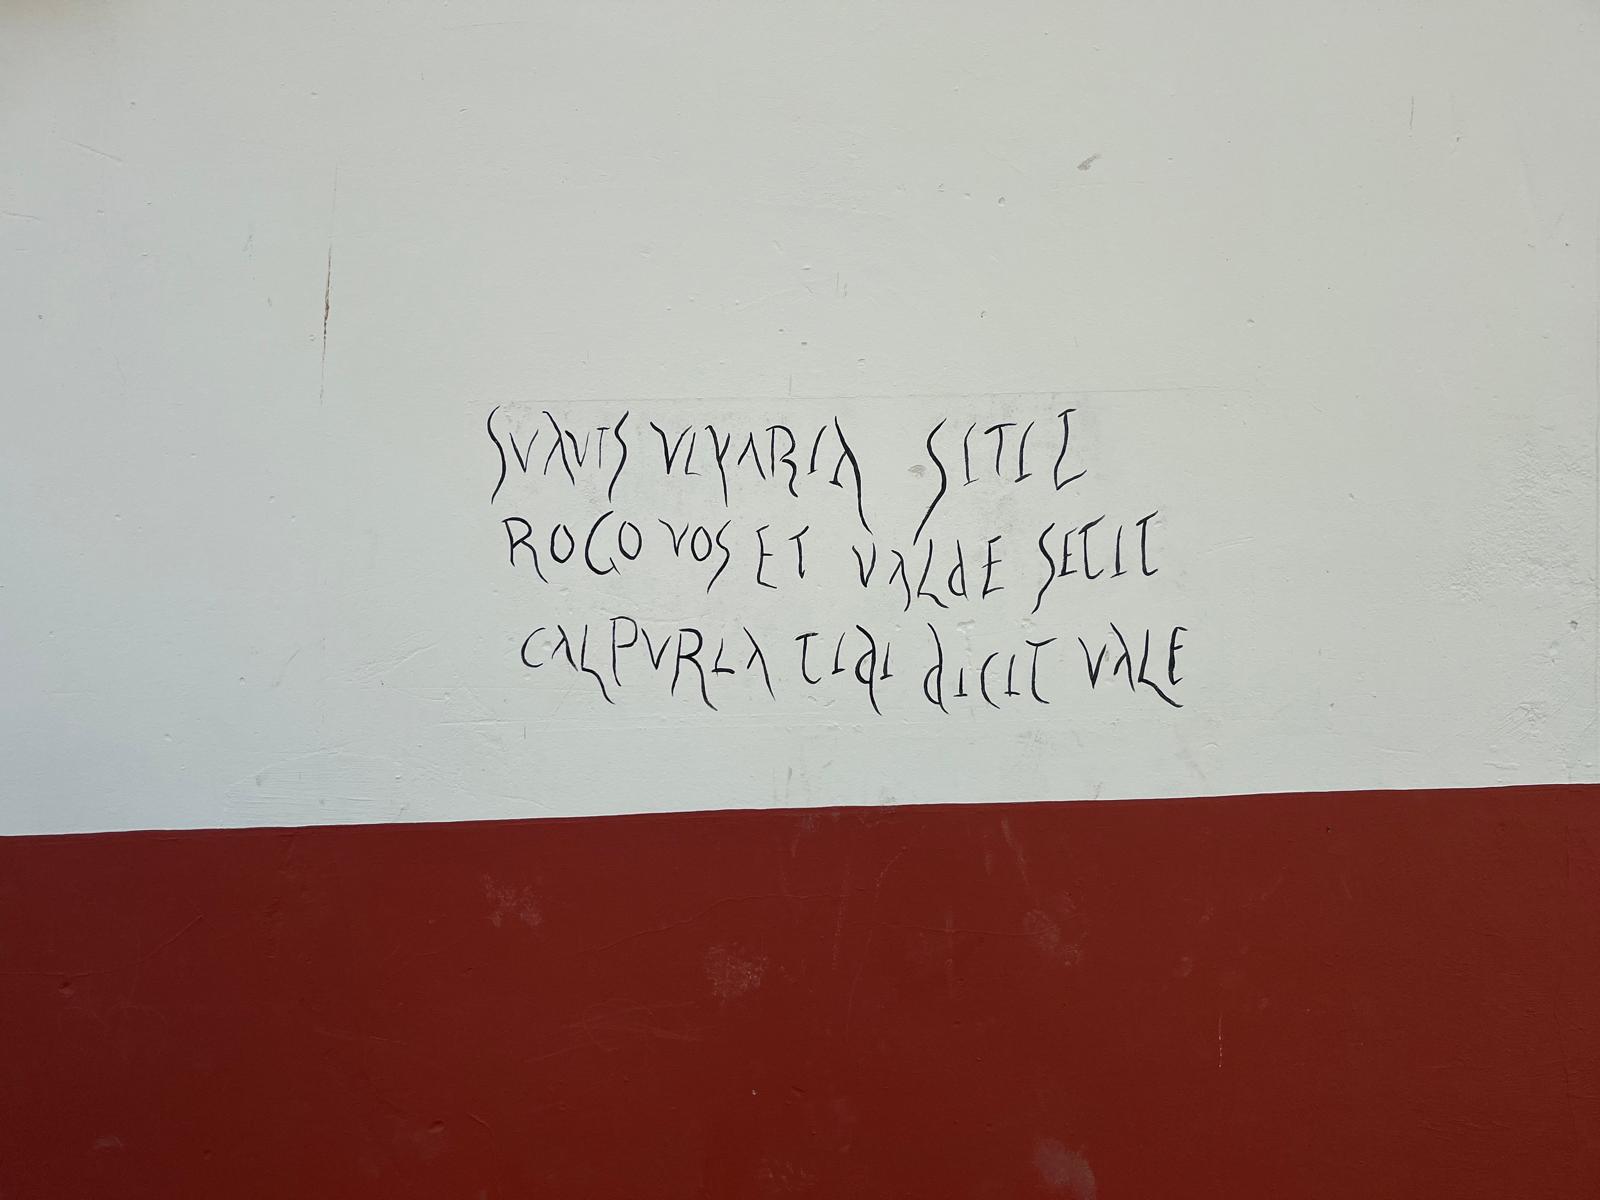 SVAVIS VINARIA SITIT
ROGO VOS ET VALDE SITIT
CALPVRNIA TIBI DICIT VALE